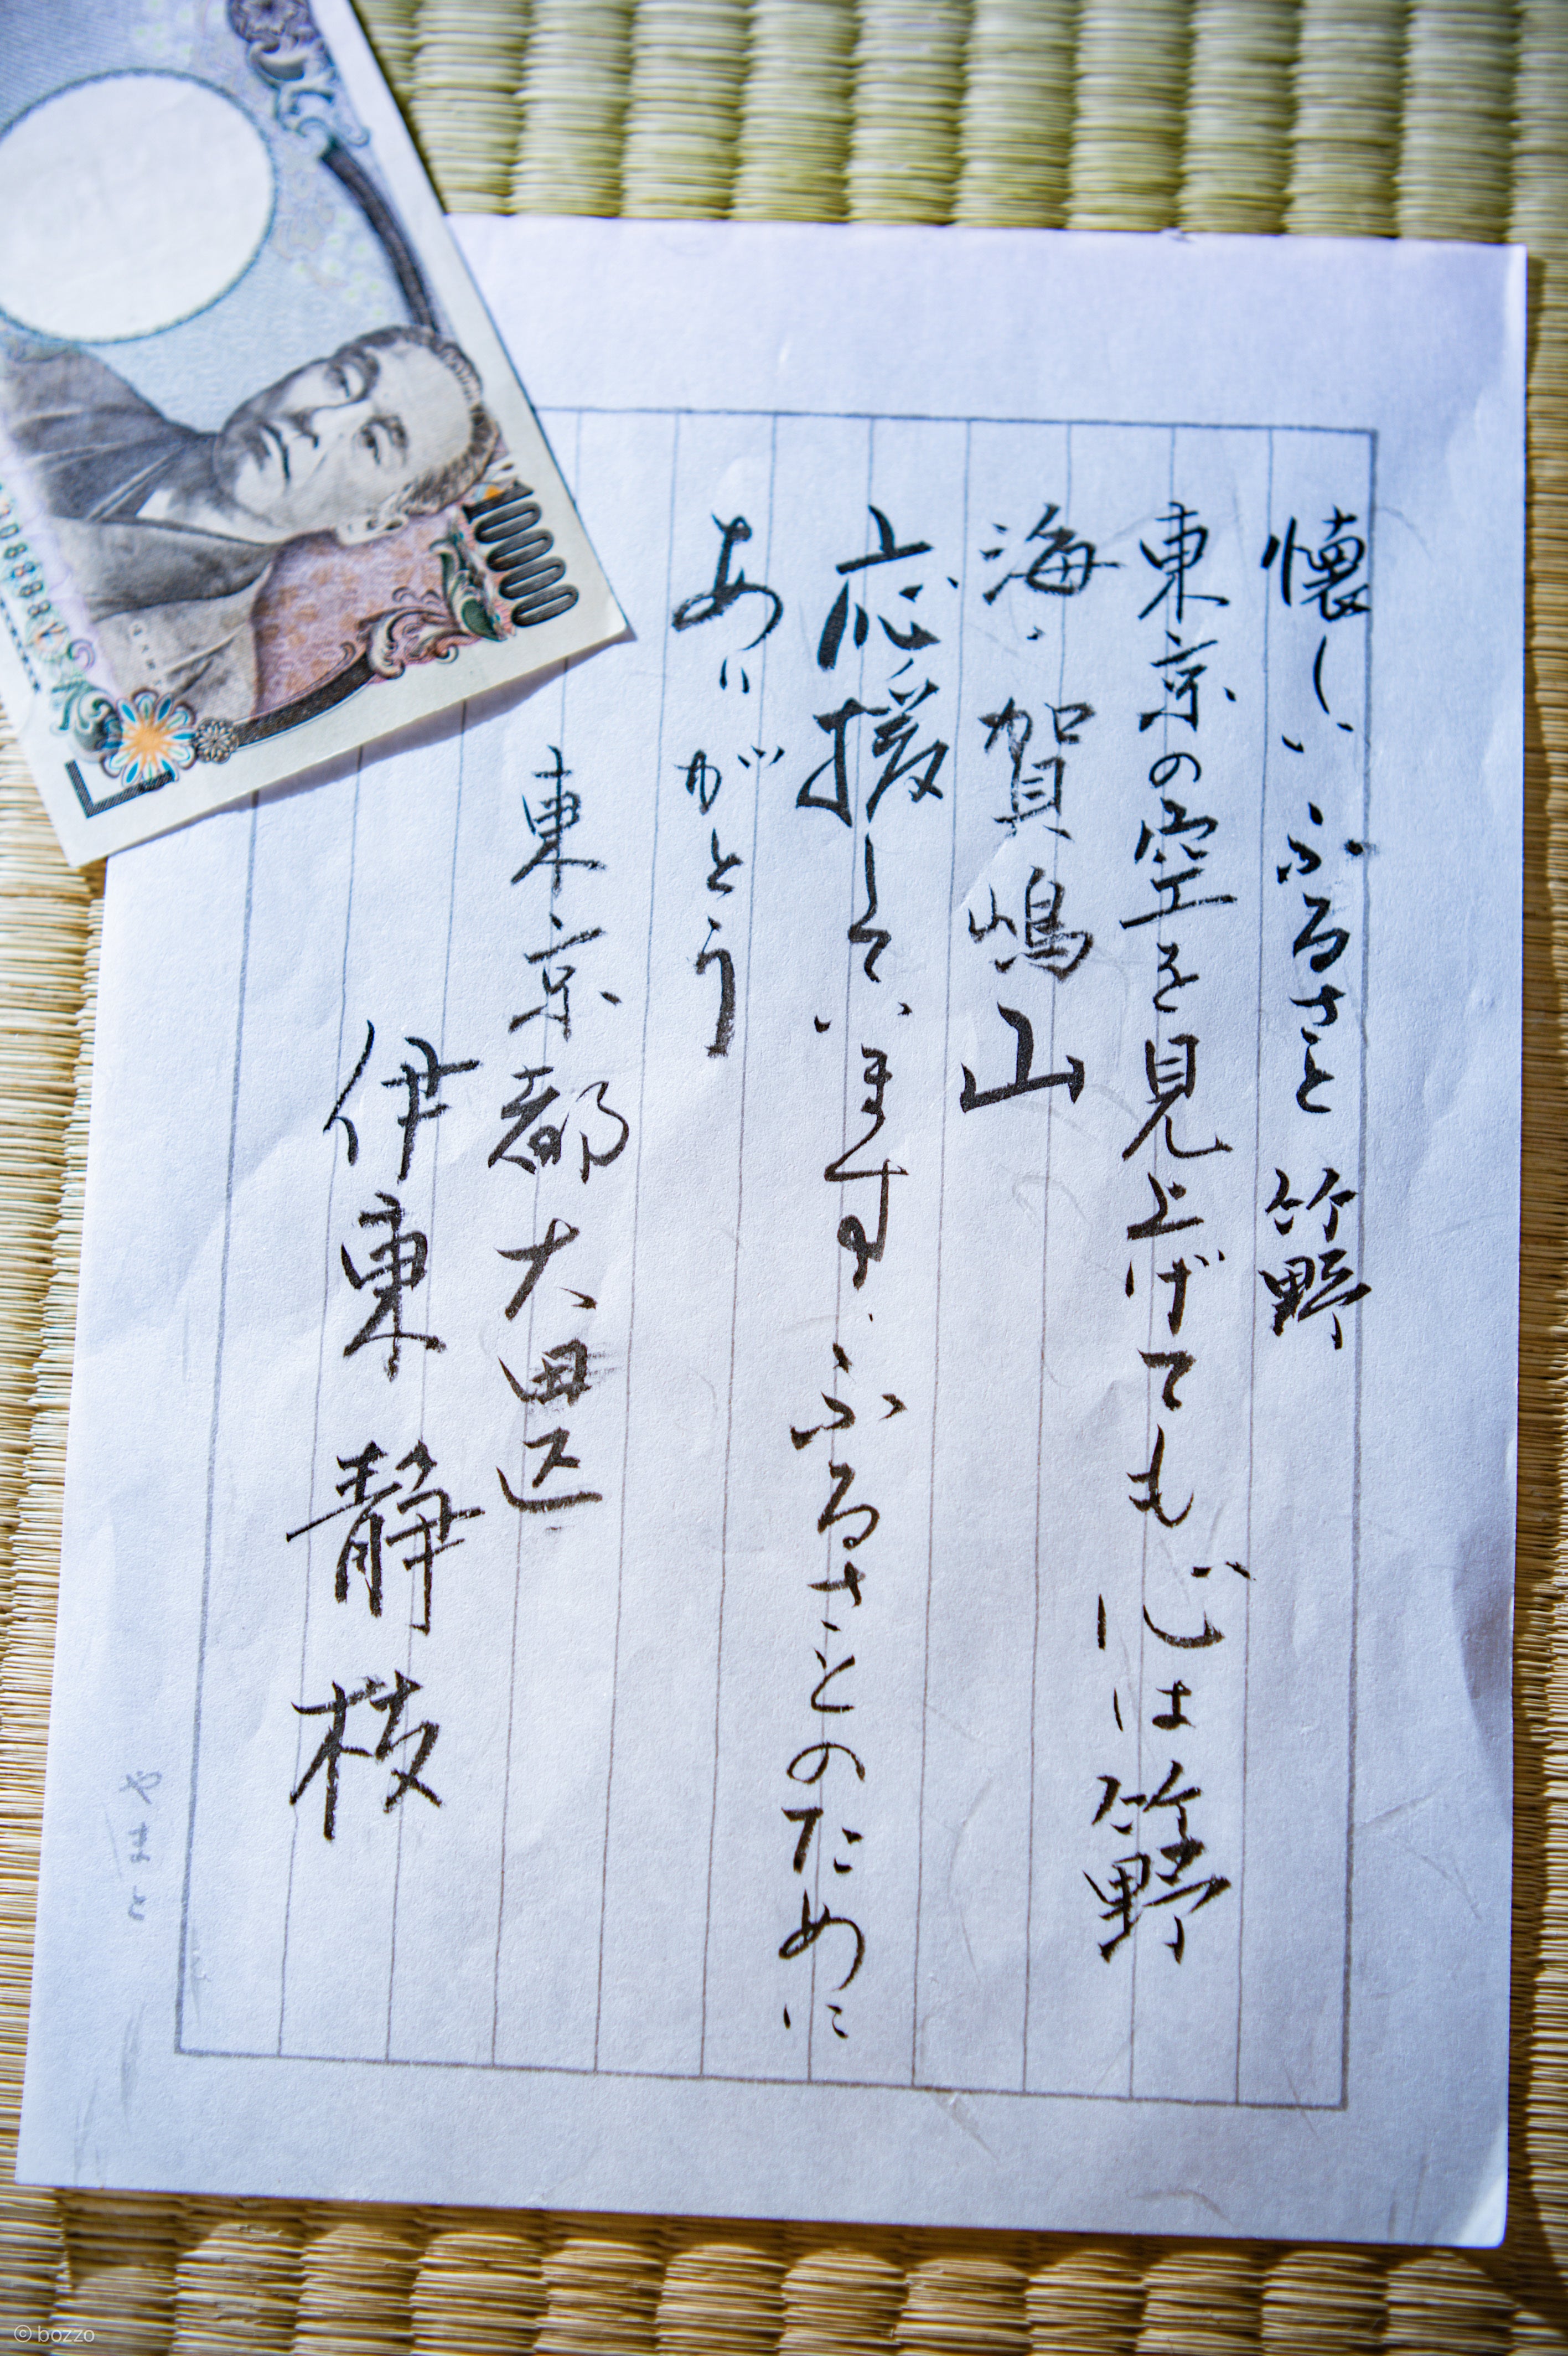 懐しいふるさと 竹野
東京の空を見上げても心は竹野
海、賀嶋山
応援しています、ふるさとのために
ありがとう
東京都大田区
伊東 静枝
10000
© bozzo